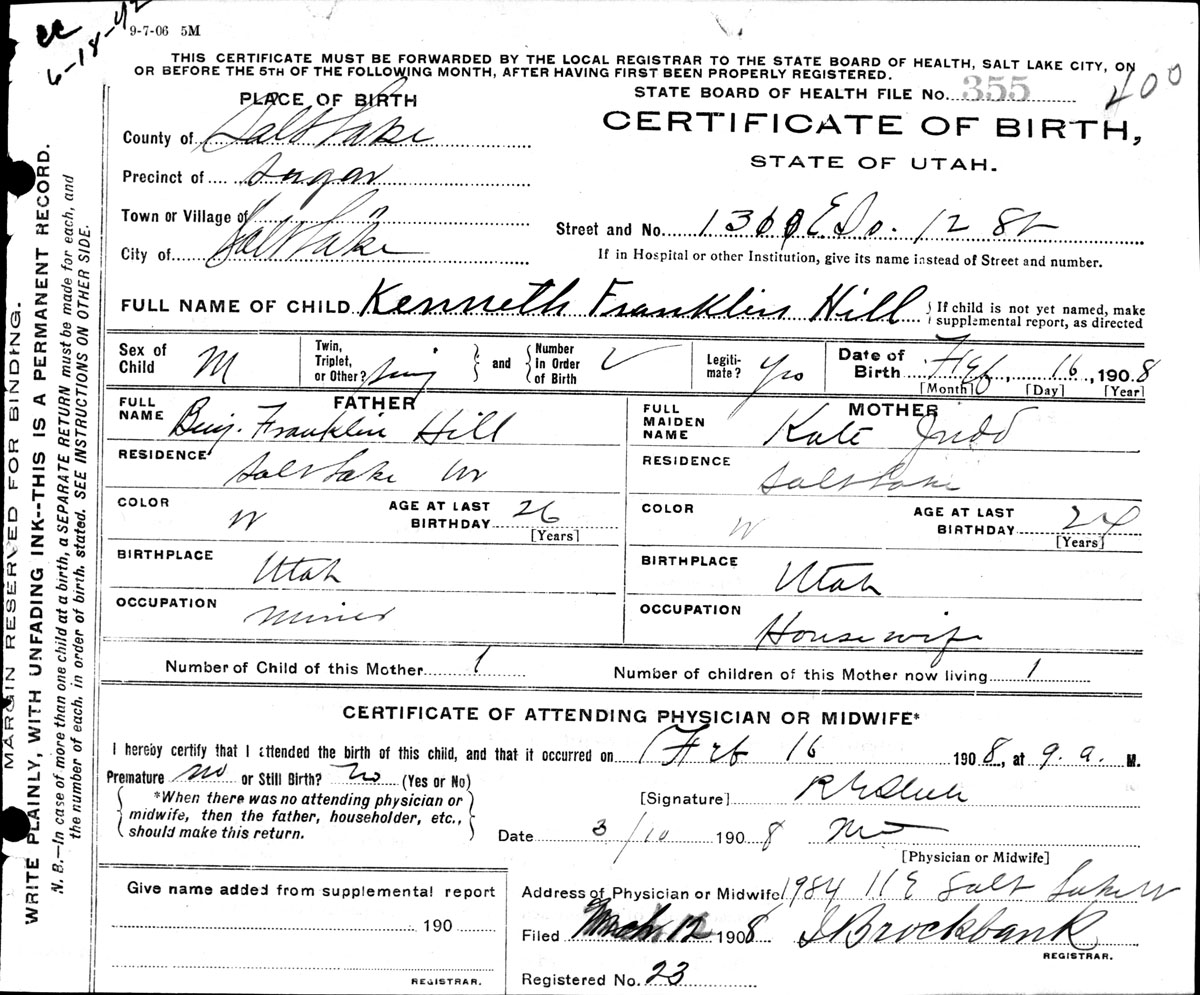 cc
6-18-42
9-7-06 5M
THIS CERTIFICATE MUST BE FORWARDED BY THE LOCAL REGISTRAR TO THE STATE BOARD OF HEALTH, SALT LAKE CITY, ON
OR BEFORE THE 5TH OF THE FOLLOWING MONTH, AFTER HAVING FIRST BEEN PROPERLY REGISTERED.
STATE BOARD OF HEALTH FILE No. 355
400
PLACE OF BIRTH
CERTIFICATE OF BIRTH,
STATE OF UTAH.
County of Salt Lake
Precinct of Sugar
Town or Village of
City of Salt Lake
Street and No. E So. 12 St
If in Hospital or other Institution, give its name instead of Street and number.
FULL NAME OF CHILD Kenneth Franklin Hill
If child is not yet named, make
supplemental report, as directed
Sex of Child M
Twin, Triplet, or Other?
and
Number In Order of Birth
Legiti-mate? Yes
Date of Birth Feb 16, 1908
[Month] [Day] [Year]
FATHER
FULL NAME Benj. Franklin Hill
RESIDENCE Salt Lake
COLOR W
AGE AT LAST BIRTHDAY 26
[Years]
BIRTHPLACE Utah
OCCUPATION Miner
MOTHER
FULL MAIDEN NAME Kate Judd
RESIDENCE Salt Lake
COLOR W
AGE AT LAST BIRTHDAY 24
[Years]
BIRTHPLACE Utah
OCCUPATION Housewife
Number of Child of this Mother 1
Number of children of this Mother now living 1
CERTIFICATE OF ATTENDING PHYSICIAN OR MIDWIFE*
I hereby certify that I attended the birth of this child, and that it occurred on Feb 16 1908, at 9. a. M.
Premature no or Still Birth? no (Yes or No)
*When there was no attending physician or
midwife, then the father, householder, etc.,
should make this return.
[Signature]
Date 3/10 1908
[Physician or Midwife]
Give name added from supplemental report
190
REGISTRAR.
Address of Physician or Midwife 1984 11 E Salt Lake
Filed March 12 1908 Brockbank
REGISTRAR.
Registered No. 23
MARGIN RESERVED FOR BINDING.
WRITE PLAINLY, WITH UNFADING INK--THIS IS A PERMANENT RECORD.
N. B.—In case of more than one child at a birth, a SEPARATE RETURN must be made for each, and
the number of each, in order of birth, stated. SEE INSTRUCTIONS ON OTHER SIDE.